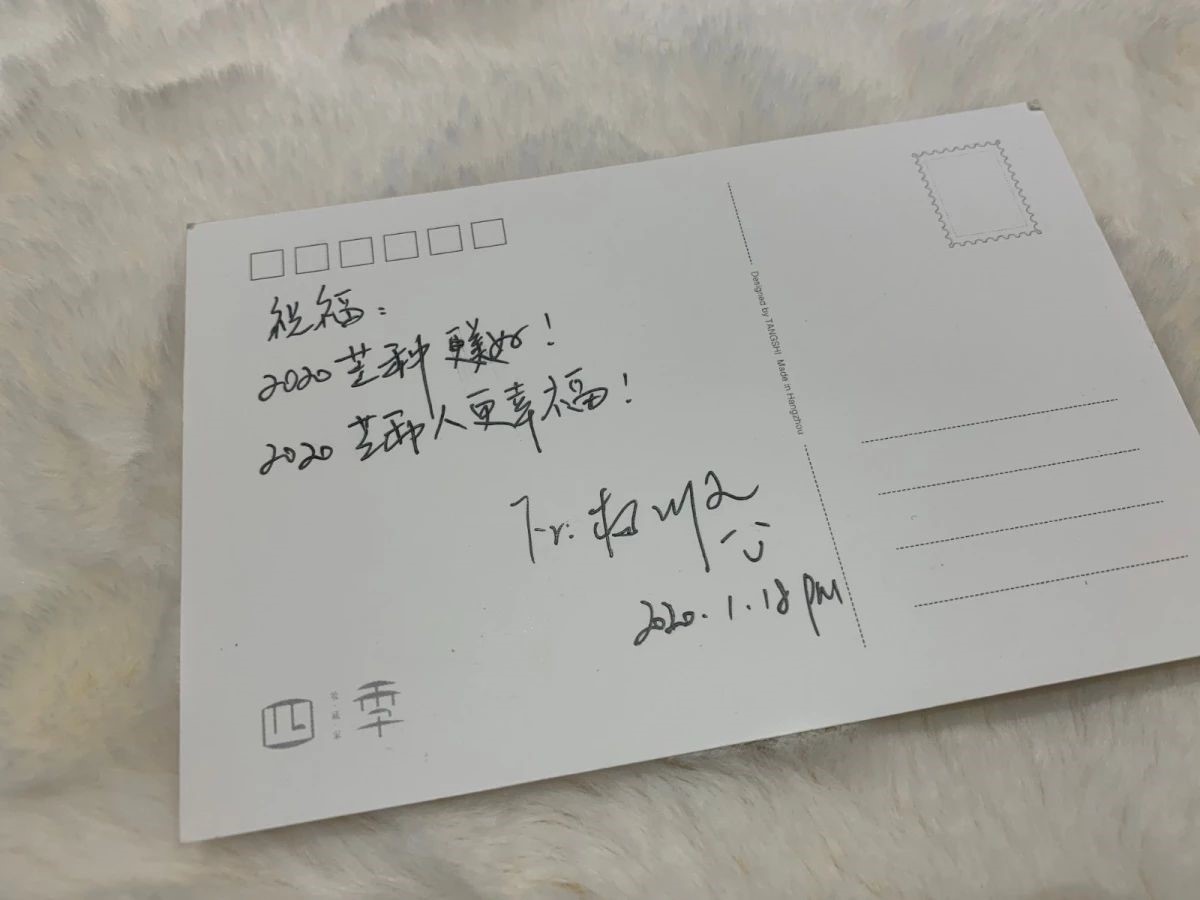 祝福：
2020 芒种 更美好！
2020 芒种人更幸福！
Fr:
2020.1.18 PM
Designed by TANGSHI Made in Hangzhou
四季